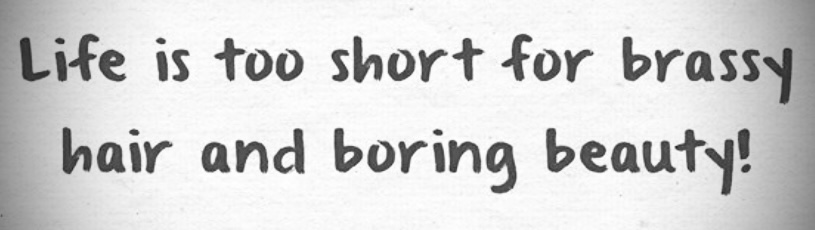 Life is too short for brassy
hair and boring beauty!